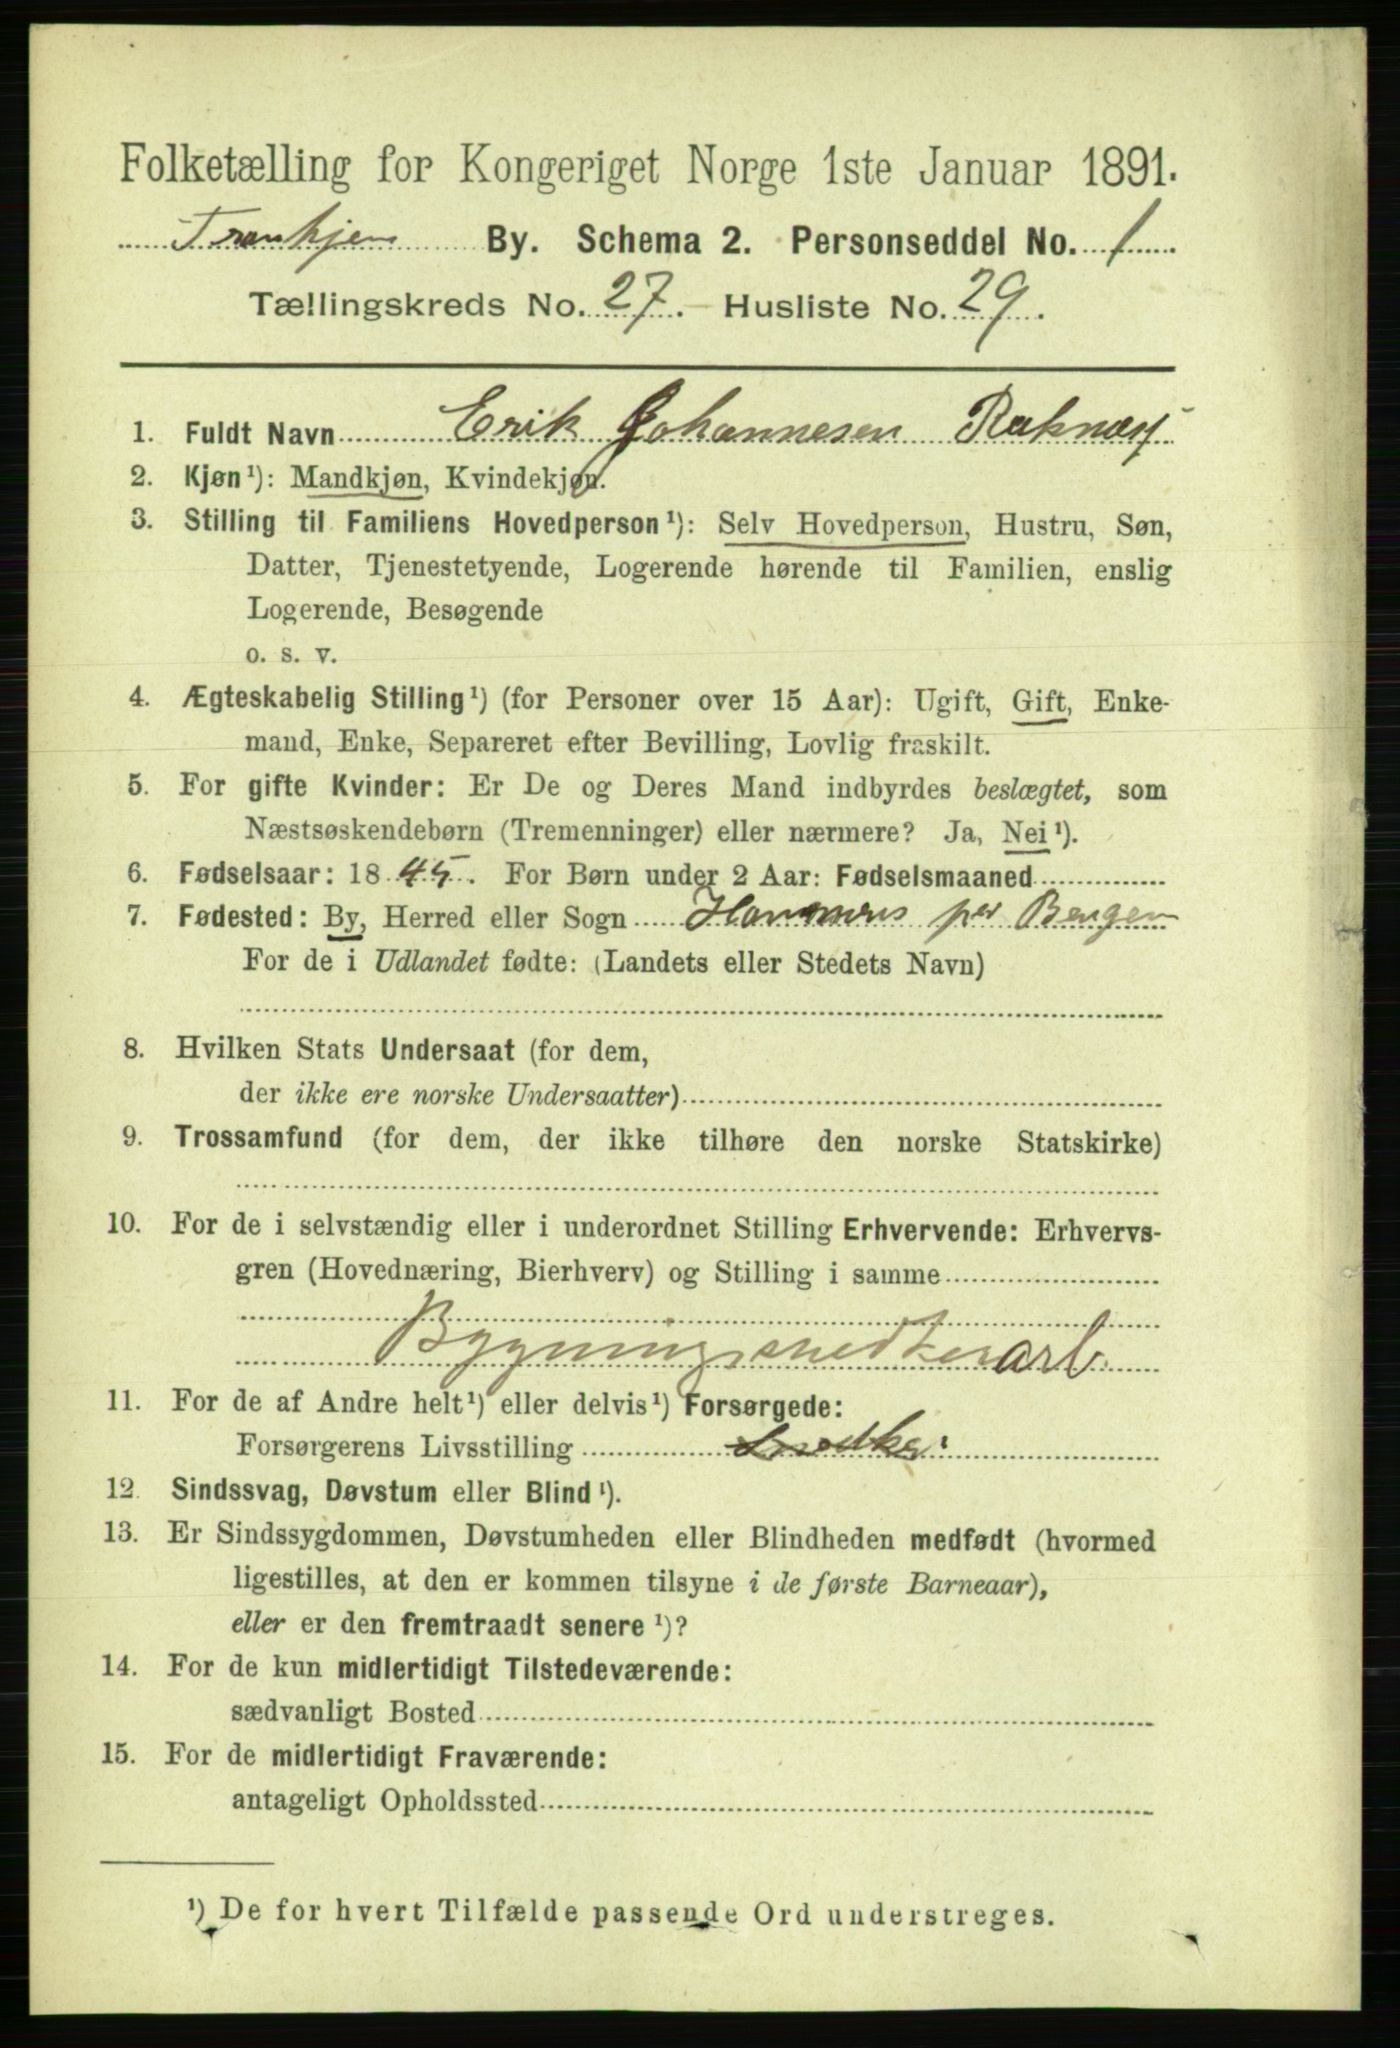 Folketælling for Kongeriget Norge 1ste Januar 1891.
Tronhjem By. Schema 2. Personseddel No. 1
Tællingskreds No. 27. Husliste No. 29.
1. Fuldt Navn Erik Johannesen Raknæs
2. Kjøn¹): Mandkjøn, Kvindekjøn.
3. Stilling til Familiens Hovedperson¹): Selv Hovedperson, Hustru, Søn,
Datter, Tjenestetyende, Logerende hørende til Familien, enslig
Logerende, Besøgende
o. s. v.
4. Ægteskabelig Stilling¹) (for Personer over 15 Aar): Ugift, Gift, Enke-
mand, Enke, Separeret efter Bevilling, Lovlig fraskilt.
5. For gifte Kvinder: Er De og Deres Mand indbyrdes beslægtet, som
Næstsøskendebørn (Tremenninger) eller nærmere? Ja, Nei¹).
6. Fødselsaar: 1845. For Børn under 2 Aar: Fødselsmaaned
7. Fødested: By, Herred eller Sogn Hammers per Bergen
For de i Udlandet fødte: (Landets eller Stedets Navn)
8. Hvilken Stats Undersaat (for dem,
der ikke ere norske Undersaatter)
9. Trossamfund (for dem, der ikke tilhøre den norske Statskirke)
10. For de i selvstændig eller i underordnet Stilling Erhvervende: Erhvervs-
gren (Hovednæring, Bierhverv) og Stilling i samme
Bygningssnedkerarb.
11. For de af Andre helt¹) eller delvis¹) Forsørgede:
Forsørgerens Livsstilling Snedker
12. Sindssvag, Døvstum eller Blind¹).
13. Er Sindssygdommen, Døvstumheden eller Blindheden medfødt (hvormed
ligestilles, at den er kommen tilsyne i de første Barneaar),
eller er den fremtraadt senere¹)?
14. For de kun midlertidigt Tilstedeværende:
sædvanligt Bosted
15. For de midlertidigt Fraværende:
antageligt Opholdssted
¹) De for hvert Tilfælde passende Ord understreges.